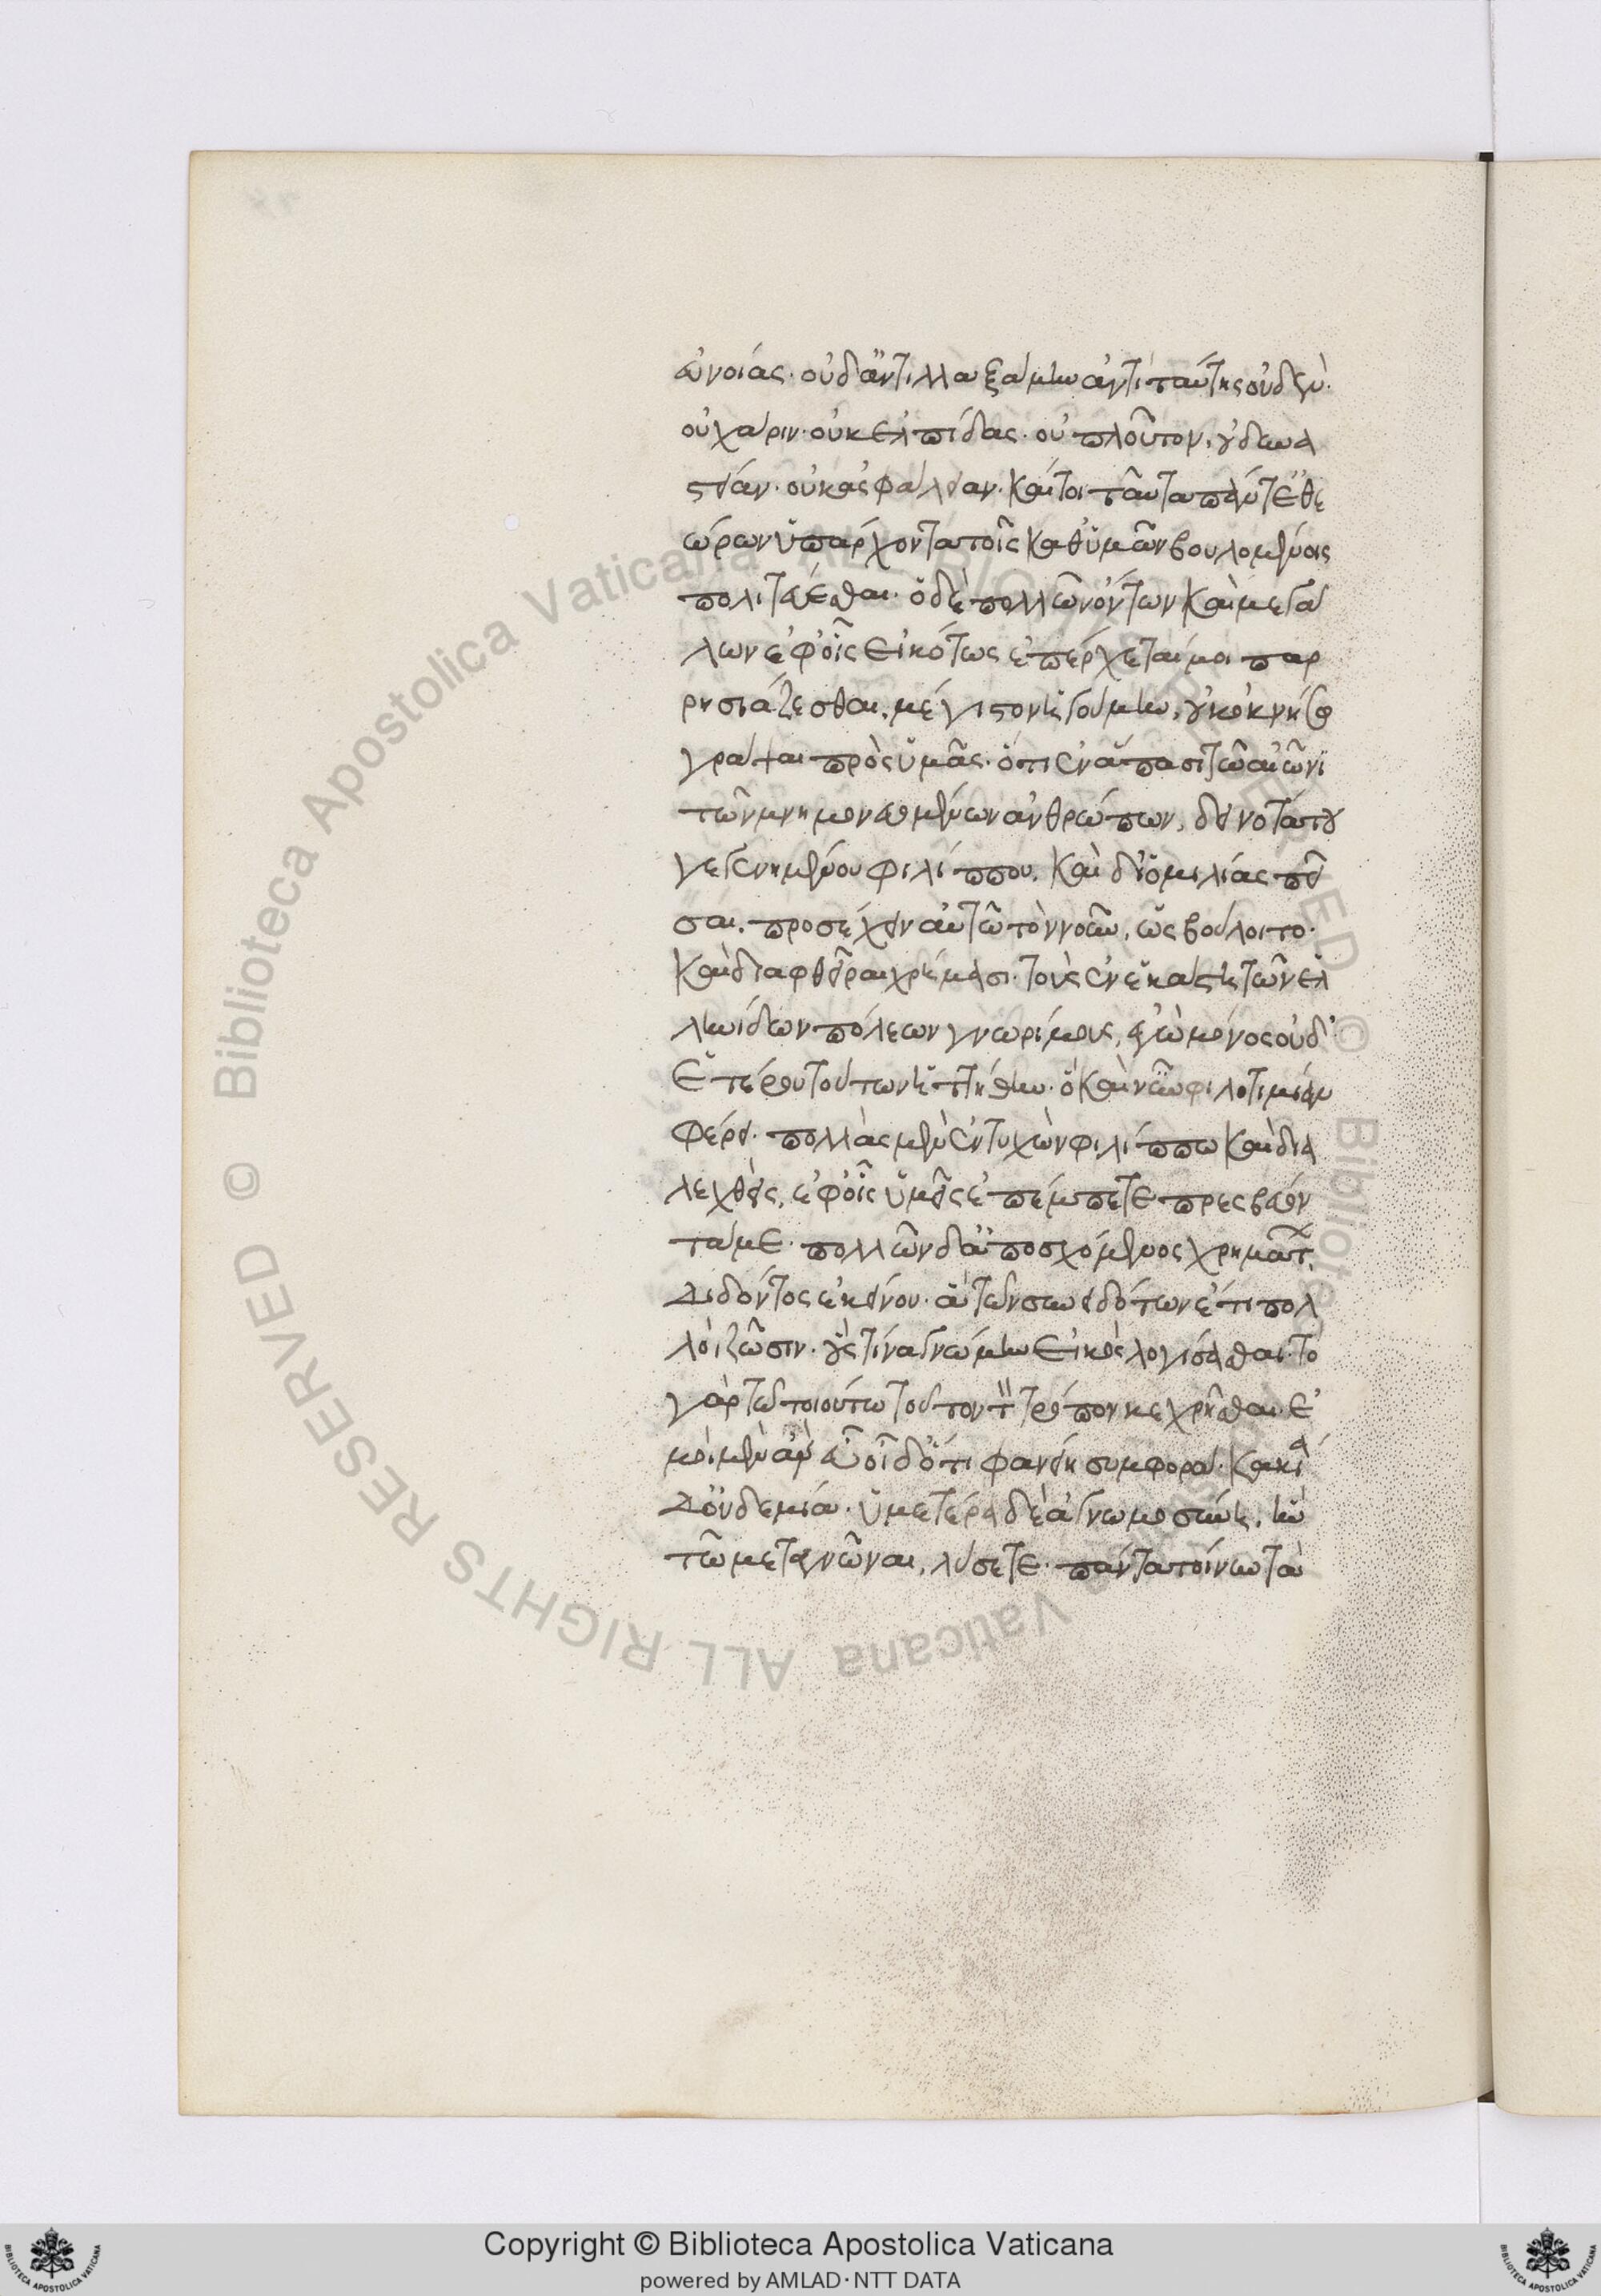 εὐνοίας. οὐδ' ἂν ἠλλαξάμην ἀντὶ ταύτης οὐδέν.
οὐ χάριν. οὐκ ἐλπίδας. οὐ πλοῦτον. οὐ δυνα
στείαν. οὐκ ἀσφάλειαν. καίτοι ταῦτα πάντ' ἐθε
ώρουν ὑπάρχοντα τοῖς καθ' ὑμῶν βουλομένοις
πολιτεύεσθαι. ὃ δὲ πολλῶν ὄντων καὶ μεγά
λων ἐφ' οἷς εἰκότως ἐπέρχεταί μοι παρ
ρησιάζεσθαι. μέγιστον ἡγούμην. οὐκ ὀκνήσω
γράψαι πρὸς ὑμᾶς. ὅτι ἐν ἅπαντι τῷ αἰῶνι
τῶν μνημονευομένων ἀνθρώπων. δεινοτάτου
γεγενημένου φιλίππου. καὶ δι' ὁμιλίας πεῖ
σαι. προσέχειν αὐτῷ τὸν νοῦν. ὡς βούλοιτο.
καὶ διαφθεῖραι χρήμασι. τοὺς ἐν ἑκάστῃ τῶν ἑλ
ληνίδων πόλεων γνωρίμους. ἐγὼ μόνος οὐδ'
ἑτέρου τούτων ἡττήθην. ὃ καὶ νῦν φιλοτιμίαν
φέρει. πολλὰ μὲν ἐντυχὼν φιλίππῳ καὶ δια
λεχθεὶς. ἐφ' οἷς ὑμεῖς ἐπέμπετε πρεσβεύον
τά με. πολλῶν δ' ἀποσχόμενος χρημάτ.
διδόντος ἐκείνου. ἃ τῶν συνειδότων ἔτι πολ
λοὶ ζῶσιν. οὓς τίνα γνώμην εἰκὸς λογίσασθαι. τὸ
γὰρ τῷ τοιούτῳ τοῦτον τ τρόπον κεχρῆσθαι. ἐ
μοὶ μὲν ἂν εὖ οἶδ' ὅτι φανείη συμφορά. κακία
δ' οὐδεμία. ὑμετέρα δὲ ἀγνωμοσύνη. ἣν
τῷ μεταγνῶναι. λύσετε. πάντα τοίνυν τὰ